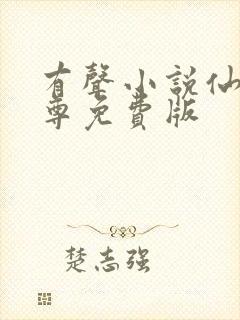 有聲小說仙
尊免費版
楚志强